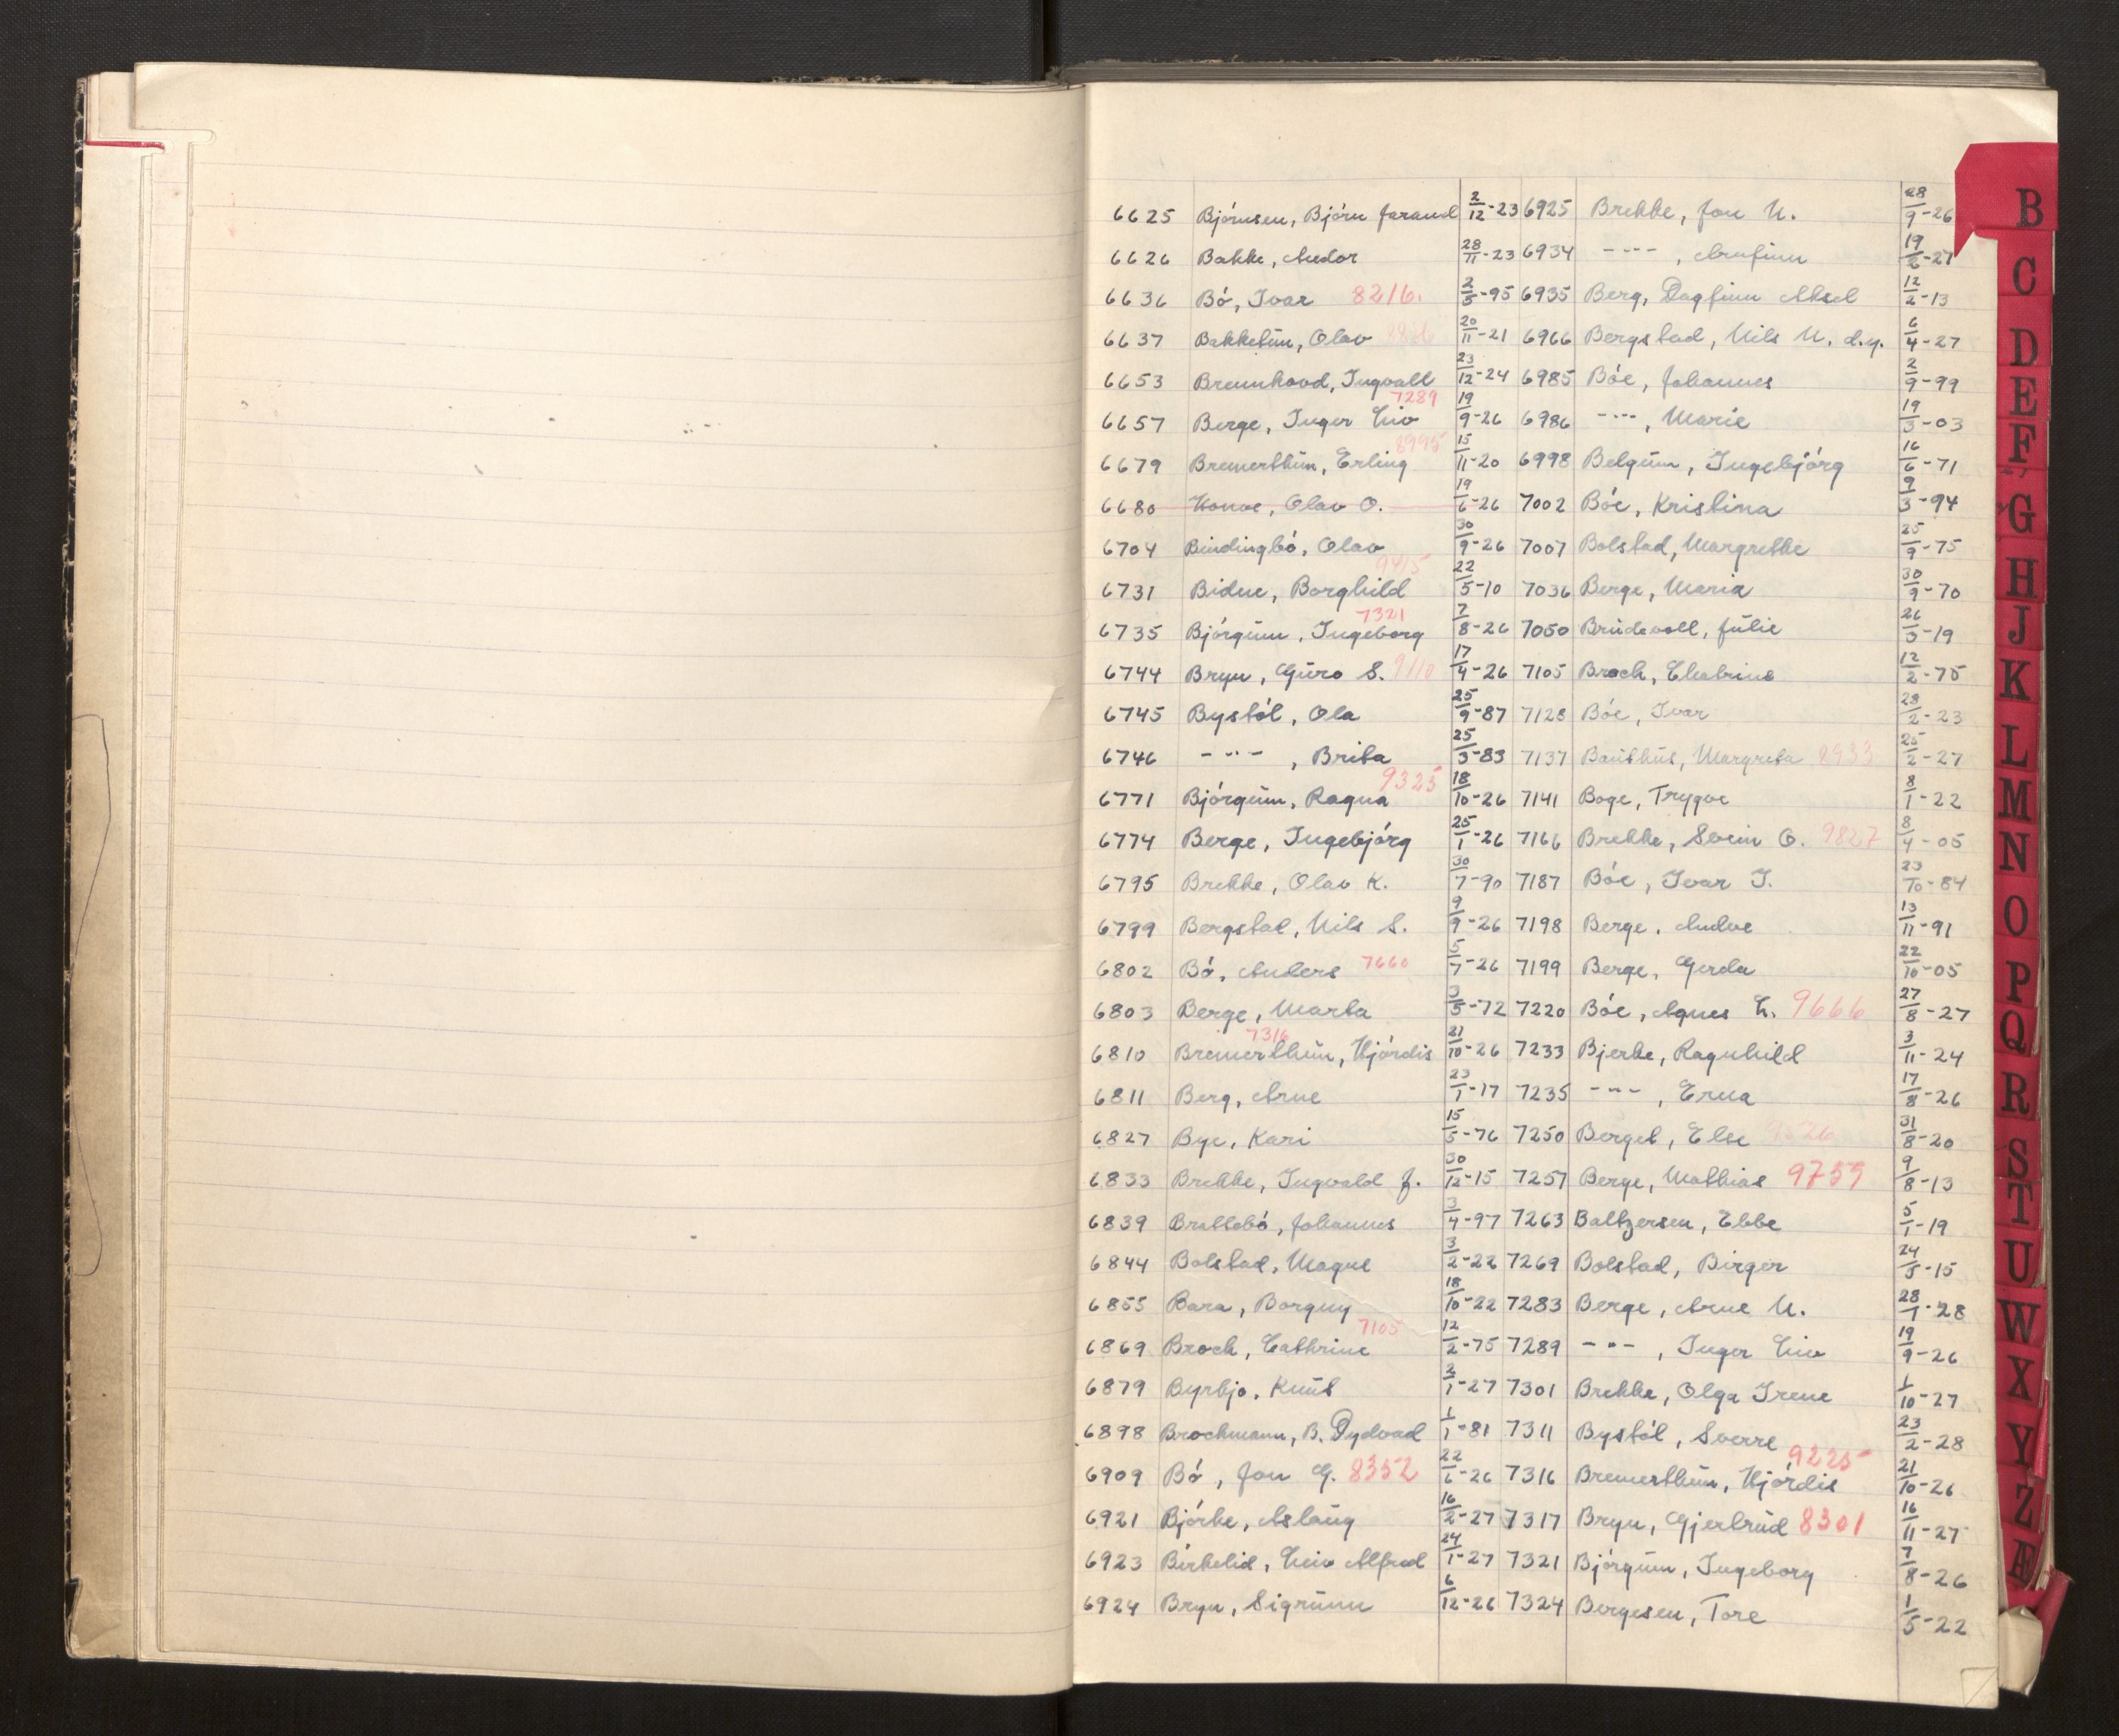 6625 Bjørnsen, Bjørn Jarand 2/12-23 6925 Brekke, Jon N. 28/9-26
6626 Bakke, Andor 28/11-23 6934 -"- , Arnfinn 19/2-27
6636 Bó, Ivar 8216. 2/5-95 6935 Berg, Dagfinn Aksel 12/2-13
6637 Bakketun, Olav 20/11-21 6966 Bergstad, Nils N. d.y. 6/4-27
6653 Brennhovd, Ingvall 23/12-24 6985 Bóe, Johannes 2/9-99
6657 Berge, Inger Liv 7289 19/9-26 6986 -"- , Marie 19/3-03
6679 Bremerthun, Erling 8995 15/11-20 6998 Belgum, Ingebjórg 16/6-71
6680 Honve, Olav O. 19/6-26 7002 Bóe, Kristina 9/3-94
6704 Bindingbó, Olav 30/9-26 7007 Bolstad, Margrethe 25/9-75
6731 Bidne, Borghild 9415 22/5-10 7036 Berge, Maria 30/9-70
6735 Bjórgum, Ingeborg 7321 7/8-26 7050 Brudevoll, Julie 26/3-19
6744 Bryn, Guro S. 9110 17/4-26 7105 Broch, Chatrine 12/2-75
6745 Bystól, Ola 25/9-87 7128 Bóe, Ivar 28/2-23
6746 -"- , Brita 25/3-83 7137 Bauthus, Margreta 8933 25/2-27
6771 Bjórgum, Ragna 9325 18/10-26 7141 Boge, Trygve 8/1-22
6774 Berge, Ingebjórg 25/1-26 7166 Brekke, Svein O. 9827 8/4-05
6795 Brekke, Olav K. 30/7-90 7187 Bóe, Ivar I. 23/10-84
6799 Bergstad, Nils S. 9/9-26 7198 Berge, Andve 13/11-91
6802 Bó, Anders 7660 5/7-26 7199 Berge, Gerda 22/10-05
6803 Berge, Marta 3/5-72 7220 Bóe, Agnes L. 9666 27/8-27
6810 Bremerthun, Hjórdis 7316 21/10-26 7233 Bjerke, Ragnhild 3/11-24
6811 Berg, Arne 23/1-17 7235 -"- , Erna 17/8-26
6827 Bye, Kari 15/5-76 7250 Berget, Else 9526 31/8-20
6833 Brekke, Ingvald J. 30/12-15 7257 Berge, Mathias 9759 9/8-13
6839 Brattebó, Johannes 3/4-97 7263 Baltzersen, Ebbe 5/1-19
6844 Bolstad, Magne 3/2-22 7269 Bolstad, Birger 24/5-15
6855 Bara, Borgny 18/10-22 7283 Berge, Arne N. 28/1-28
6869 Broch, Cathrine 7105 12/2-75 7289 -"- , Inger Liv 19/9-26
6879 Byrbjo, Knut 2/1-27 7301 Brekke, Olga Irene 1/10-27
6898 Brochmann, B. Dydvad 1/1-81 7311 Bystól, Sverre 23/2-28
6909 Bó, Jon G. 8352 22/6-26 7316 Bremerthun, Hjórdis 9225 21/10-26
6921 Bjórke, Aslaug 16/2-27 7317 Bryn, Gjertrud 8301 16/11-27
6923 Birkelid, Leiv Alfred 24/1-27 7321 Bjórgum, Ingeborg 7/8-26
6924 Bryn, Sigrunn 6/12-26 7324 Bergesen, Tore 1/5-22
B
C
D
E
F
G
H
J
K
L
M
N
O
P
Q
R
S
T
U
W
X
Y
Z
Æ